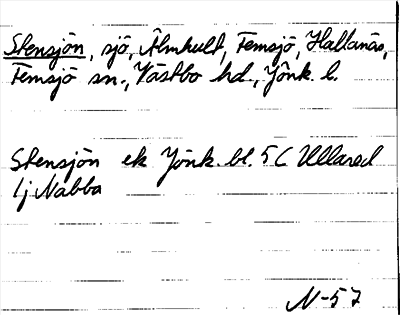 Stensjön, sjö, Älmhult, Femsjö, Hallanäs,
Femsjö sn., Västbo hd., Jönk. l.
Stensjön ek Jönk. bl. 5C Ullared
1j Nabba
N-57